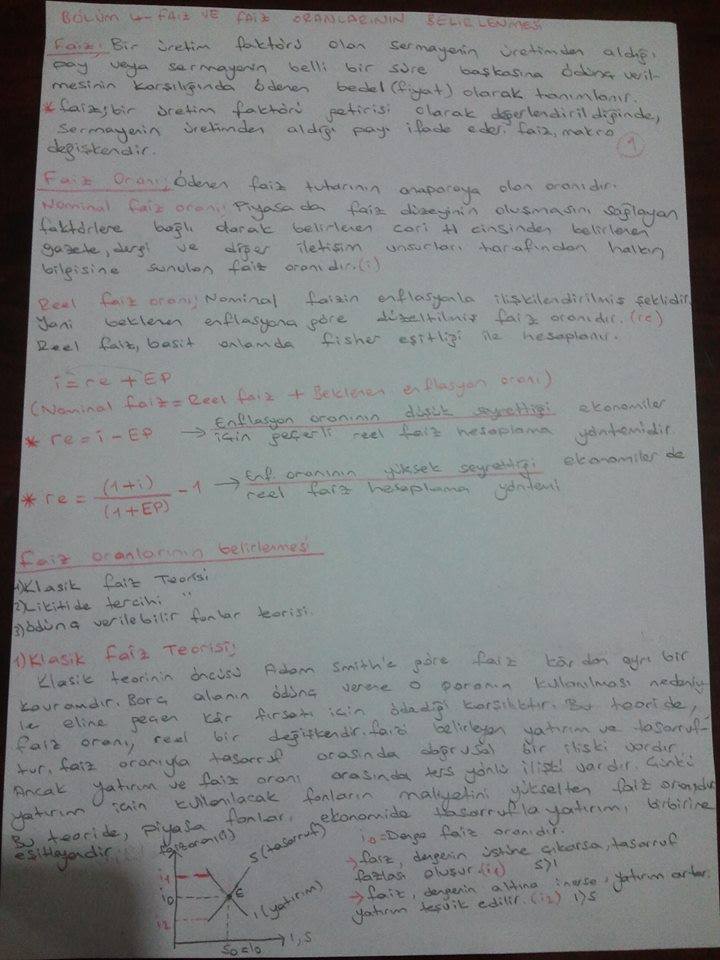 BÖLÜM 4 - FAİZ VE FAİZ ORANLARININ BELİRLENMESİ
Faiz: Bir üretim faktörü olan sermayenin üretimden aldığı
pay veya sermayenin belli bir süre başkasına ödünç veril-
mesinin karşılığında ödenen bedel (fiyat) olarak tanımlanır.
* faiz; bir üretim faktörü getirisi olarak değerlendirildiğinde,
sermayenin üretimden aldığı payı ifade eder. faiz, makro
değişkendir.
1
Faiz Oranı; Ödenen faiz tutarının anaparaya olan oranıdır.
Nominal faiz oranı; Piyasada faiz düzeyinin oluşmasını sağlayan
faktörlere bağlı olarak belirlenen cari tl cinsinden belirlenen
gazete, dergi ve diğer iletişim unsurları tarafından halkın
bilgisine sunulan faiz oranıdır. (i)
Reel faiz oranı; Nominal faizin enflasyonla ilişkilendirilmiş şeklidir.
Yani beklenen enflasyona göre düzeltilmiş faiz oranıdır. (re)
Reel faiz, basit anlamda fisher eşitliği ile hesaplanır.
i = re + EP
(Nominal faiz = Reel faiz + Beklenen enflasyon oranı)
* re = i - EP → Enflasyon oranının düşük seyrettiği ekonomiler
için geçerli reel faiz hesaplama yöntemidir.
* re = (1+i) / (1+EP) - 1 → Enf. oranının yüksek seyrettiği ekonomilerde
reel faiz hesaplama yöntemi
Faiz oranlarının belirlenmesi
1) Klasik faiz Teorisi
2) Likitide tercihi "
3) Ödünç verilebilir fonlar teorisi.
1) Klasik Faiz Teorisi;
Klasik teorinin öncüsü Adam Smith'e göre faiz kârdan ayrı bir
kavramdır. Borç alanın ödünç verene o paranın kullanılması nedeniy-
le eline geçen kâr fırsatı için ödediği karşılıktır. Bu teoride,
faiz oranı, reel bir değişkendir. faizi belirleyen yatırım ve tasarruf-
tur. faiz oranıyla tasarruf arasında doğrusal bir ilişki vardır.
Ancak yatırım ve faiz oranı arasında ters yönlü ilişki vardır. Çünkü
yatırım için kullanılacak fonların maliyetini yükselten faiz oranıdır.
Bu teoride, piyasa fonları, ekonomide tasarrufla yatırımı birbirine
eşitleyendir.
faiz oranı(i)
S (tasarruf)
i1
i0
E
i2
I (yatırım)
S0=I0
I, S
i0 = Denge faiz oranıdır.
→ faiz, dengenin üstüne çıkarsa, tasarruf
fazlası oluşur. (i1) S>I
→ faiz, dengenin altına inerse, yatırım artar.
yatırım teşvik edilir. (i2) I>S